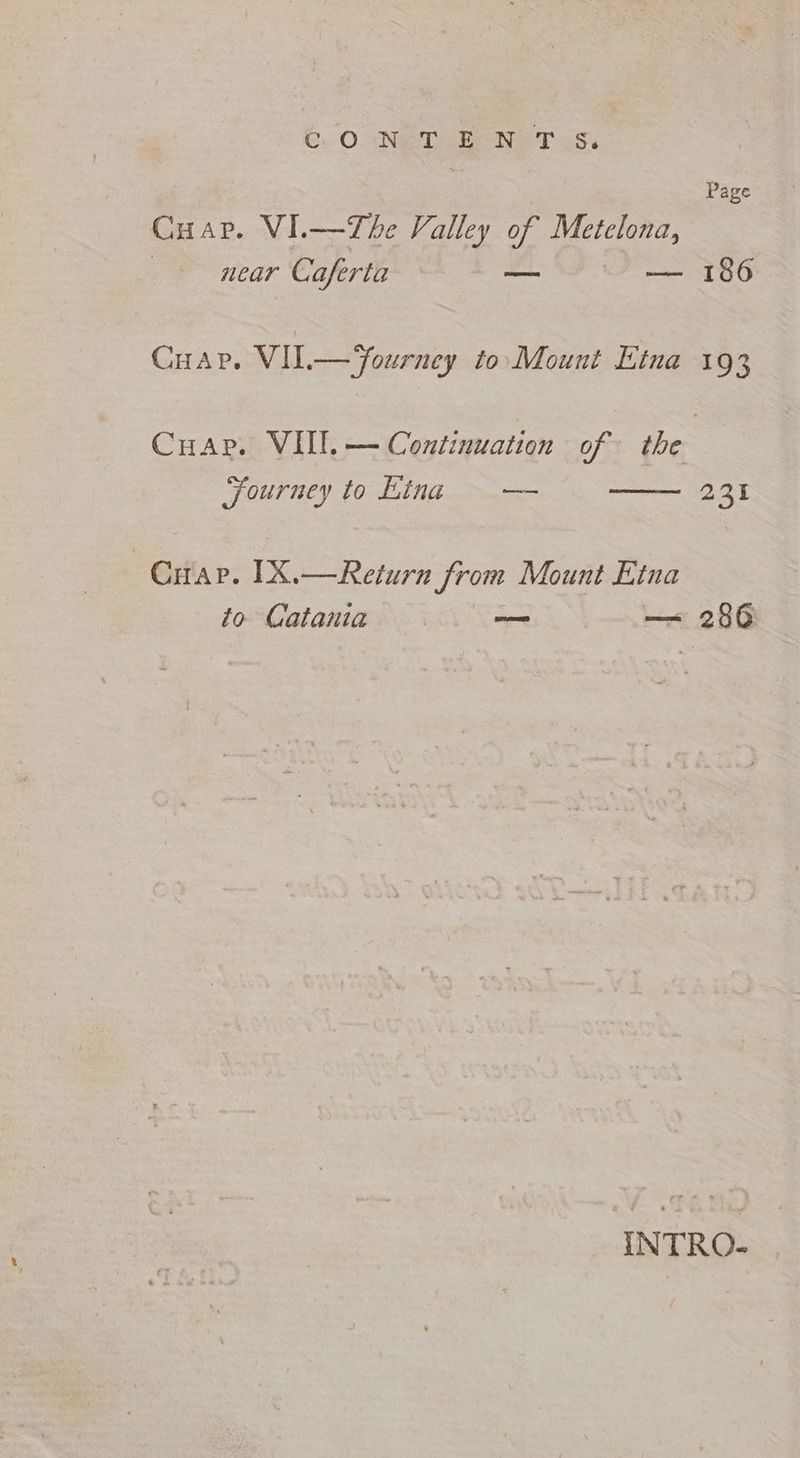 CONTENTS.
Page
CHAP. VI.—The Valley of Metelona,
near Caſerta — — 186
CHAP. VII.—Journey to Mount Etna 193
CHAP. VIII.—Continuation of the
Journey to Etna — —— 231
CHAP. IX.—Return from Mount Etna
to Catania — — 286
INTRO-